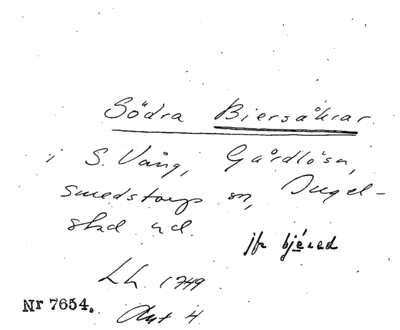 Södra Biersåkrar
i S. Vång, Gårdlösa,
Smedstorps sn, Ingel-
stad hd.
jfr bjéred
Lh. 1749
Nr 7654. Akt 4